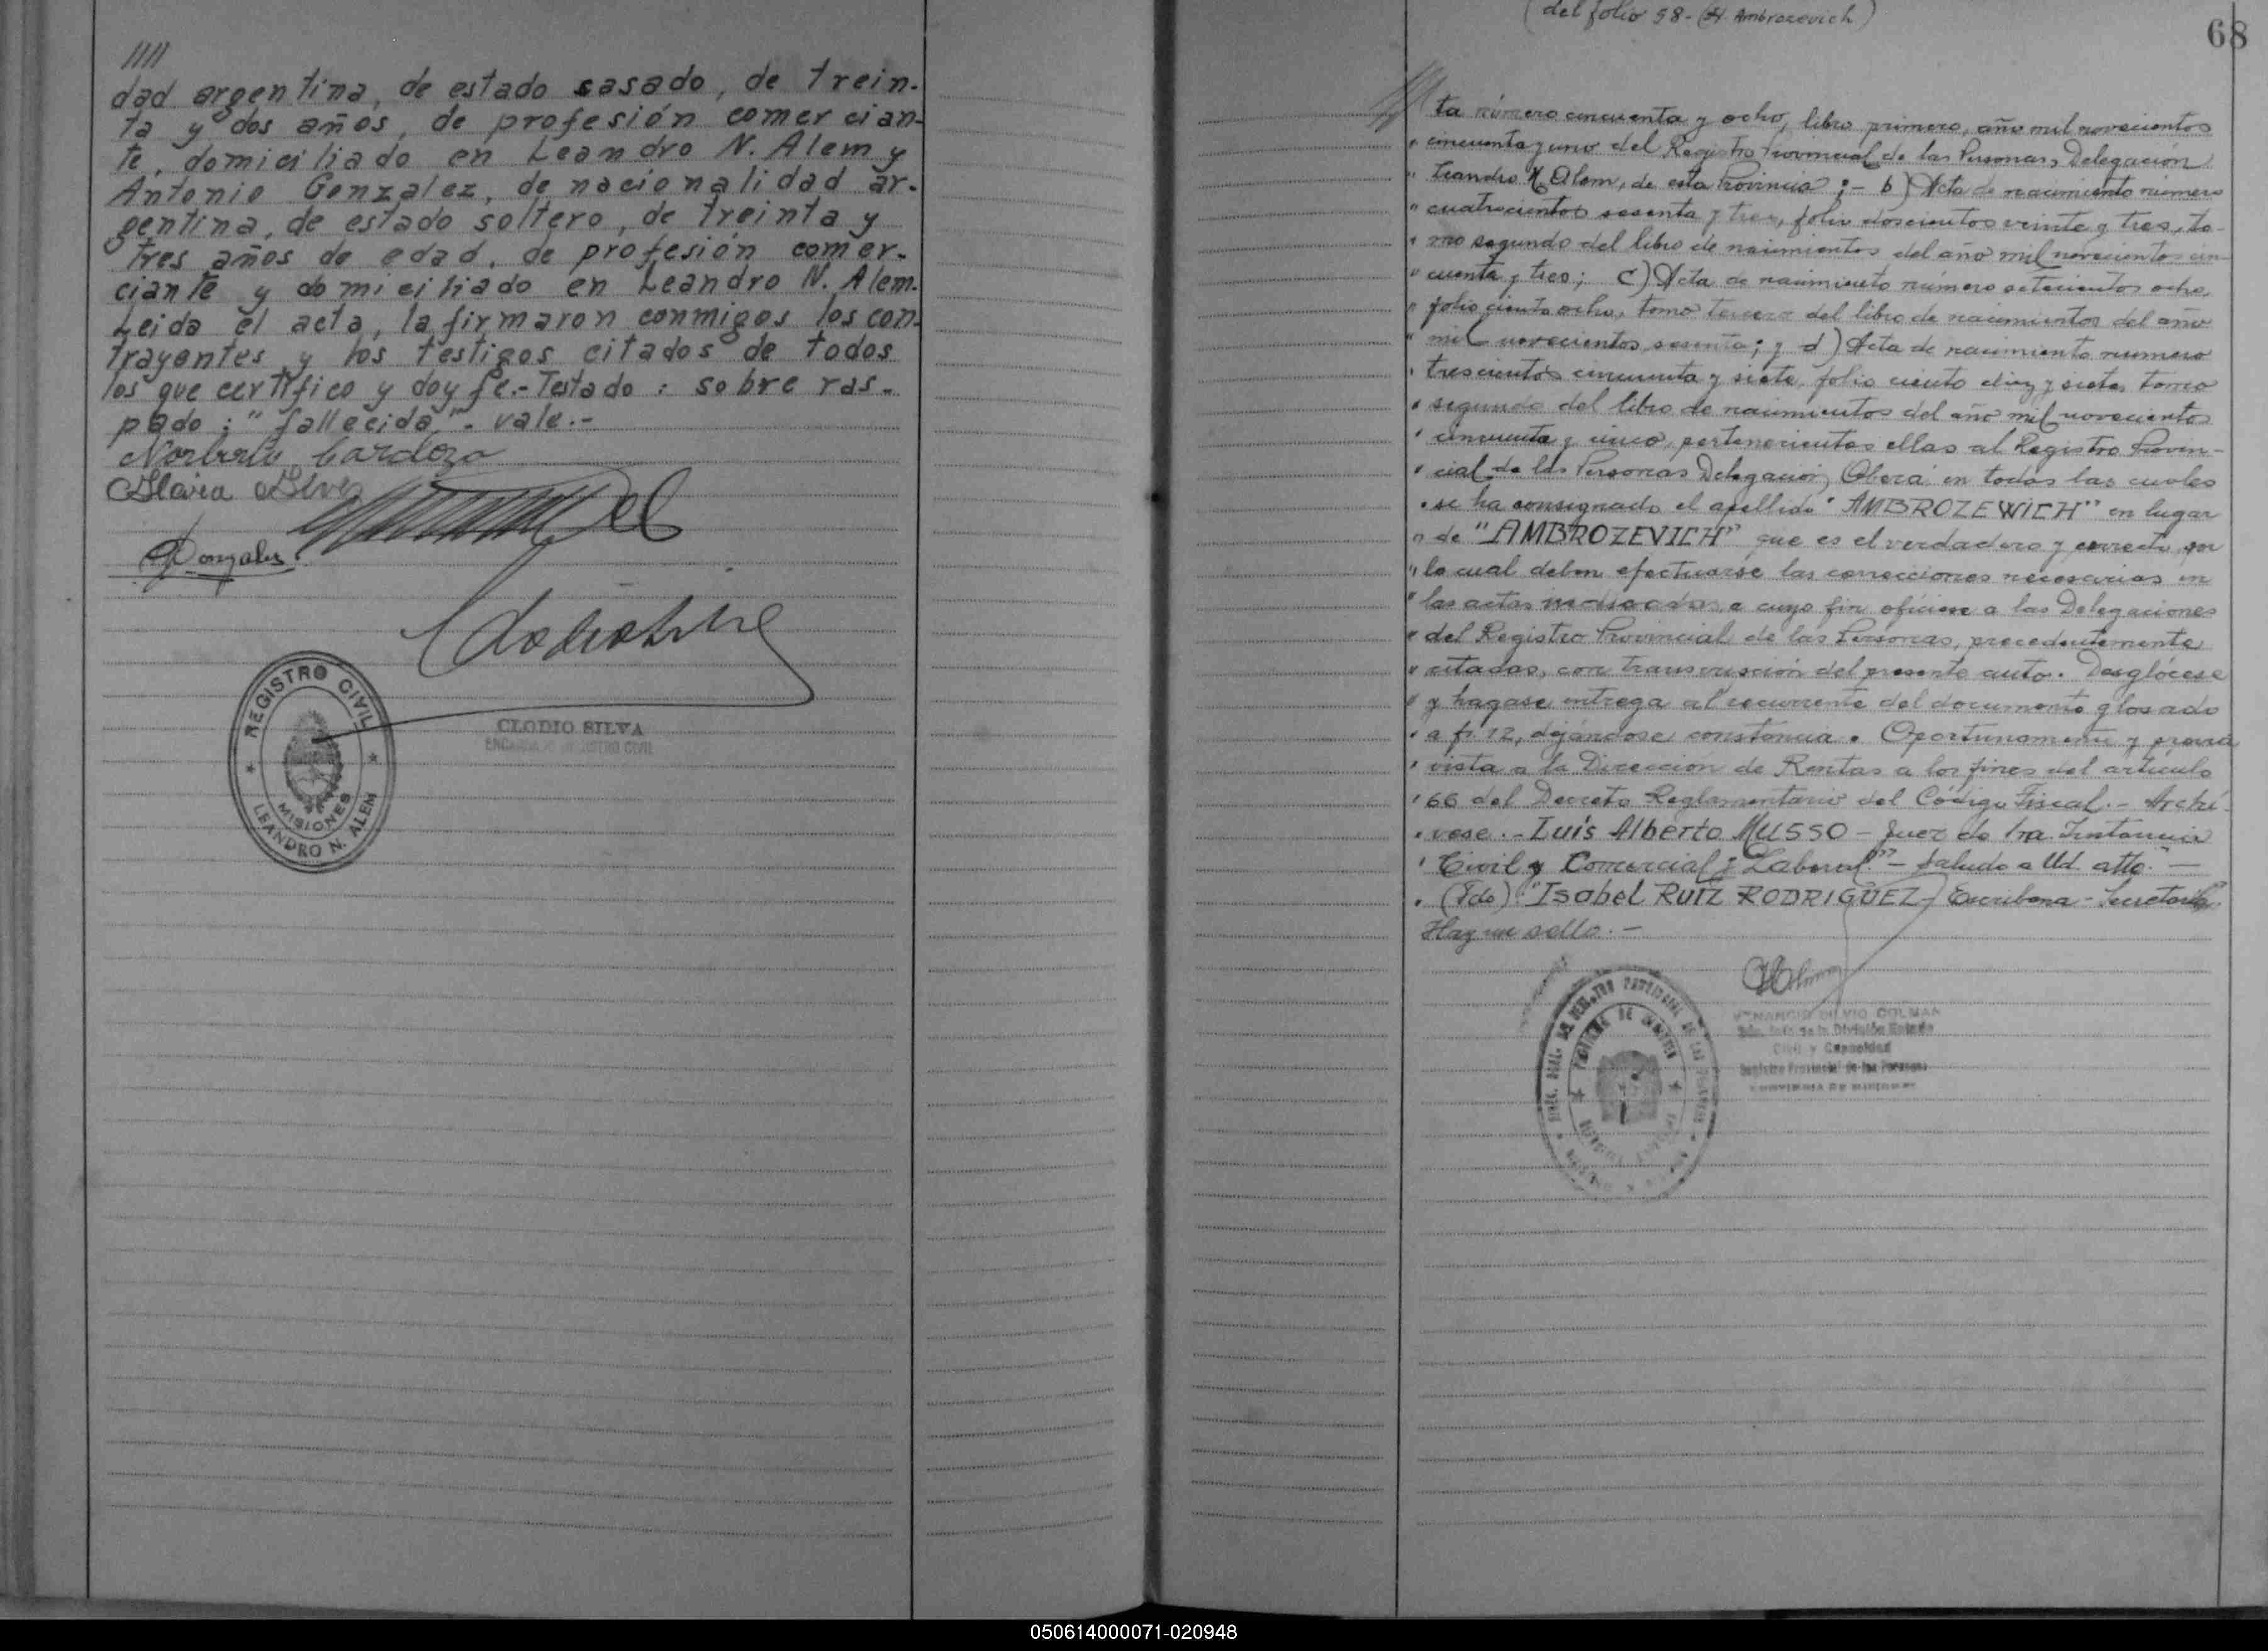 ////
dad argentina, de estado casado, de trein-
ta y dos años, de profesión comercian-
te, domiciliado en Leandro N. Alem y
Antonio Gonzalez, de nacionalidad ar-
gentina, de estado soltero, de treinta y
tres años de edad, de profesión comer-
ciante y domiciliado en Leandro N. Alem.
Leida el acta, la firmaron conmigos los con-
trayentes y los testigos citados de todos
los que certifico y doy fe.- Testado: sobre ras-
pado: "fallecida". vale.-
Norberto Cardozo
Gonzalez
REGISTRO CIVIL
MISIONES
LEANDRO N. ALEM
CLODIO SILVA
ENCARGADO REGISTRO CIVIL
(del folio 58- (H. Ambrozevich)
68
//// ta número cincuenta y ocho, libro primero, año mil novecientos
" cincuenta y uno del Registro Provincial de las Personas, Delegación
" Leandro N. Alem, de esta Provincia ;- b) Acta de nacimiento número
" cuatrocientos sesenta y tres, folio doscientos veinte y tres, to-
" mo segundo del libro de nacimientos del año mil novecientos cin-
" cuenta y tres; c) Acta de nacimiento número setecientos ocho,
" folio ciento ocho, tomo tercero del libro de nacimientos del año
" mil novecientos sesenta; y d) Acta de nacimiento numero
" trescientos cincuenta y siete, folio ciento diez y siete, tomo
" segundo del libro de nacimientos del año mil novecientos
" cincuenta y cinco, pertenecientes ellas al Registro Provin-
" cial de las Personas Delegación Oberá en todas las cuales
" se ha consignado el apellido "AMBROZEWICH" en lugar
" de "AMBROZEVICH" que es el verdadero y correcto, por
" lo cual deben efectuarse las correcciones necesarias en
" las actas indicadas, a cuyo fin ofíciese a las Delegaciones
" del Registro Provincial de las Personas, precedentemente
" citadas, con transcripción del presente auto. Desglócese
" y hagase entrega al recurrente del documento glosado
" a fs. 12, dejándose constancia. Oportunamente y previa
" vista a la Direccion de Rentas a los fines del articulo
" 66 del Decreto Reglamentario del Código Fiscal.- Archí-
" vese.- Luis Alberto MUSSO - Juez de 1ra Instancia
" Civil y Comercial y Laboral" - Saludo a Ud. atte." -
" (Fdo): "Isabel RUIZ RODRIGUEZ - Escribana - Secretaria
Hay un sello.-
VENANCIO SILVIO COLMAN
de la División Estado
Civil y Capacidad
Registro Provincial de las Personas
PROVINCIA DE MISIONES
050614000071-020948